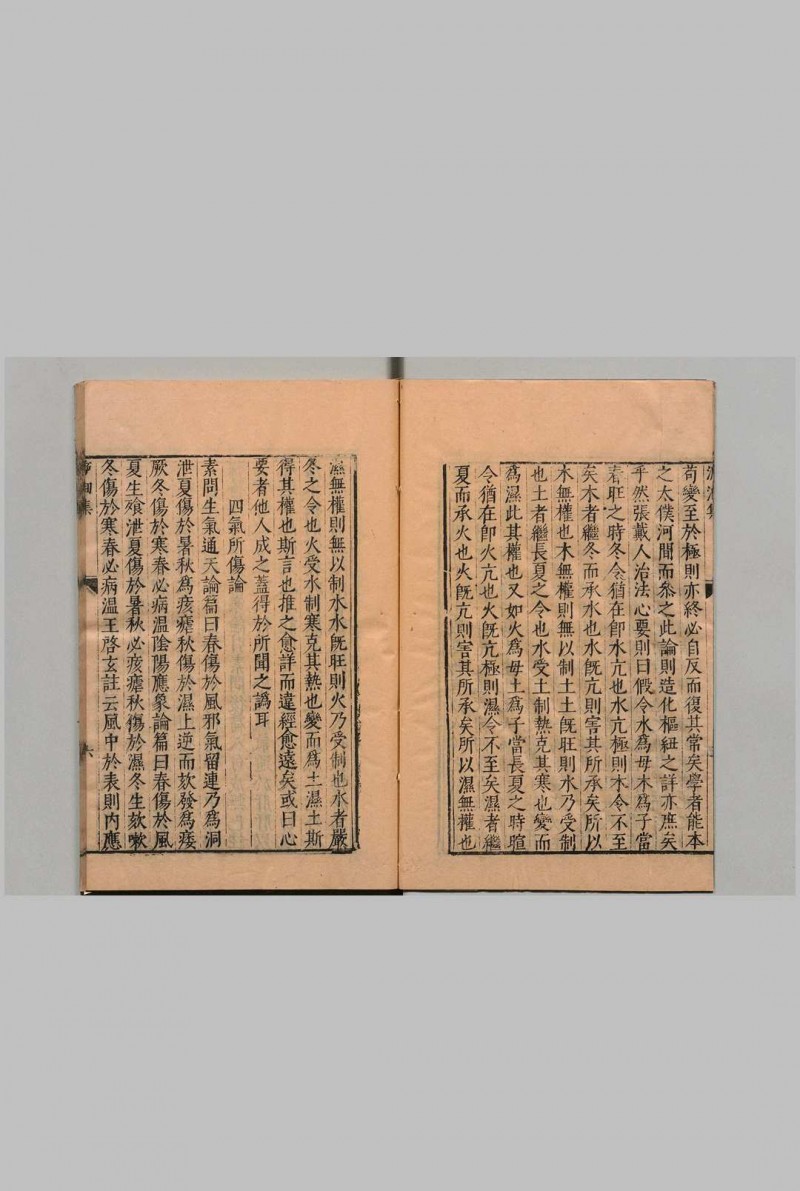 苟變至於極則亦終必自反而復其常矣學者能本
之太僕河間而叅之此論則造化樞紐之詳亦庶矣
乎然張戴人治法心要則曰假令水爲母木爲子當
春旺之時冬令猶在卽水亢也水亢極則木令不至
矣木者繼冬而承水也水旣亢則害其所承矣所以
木無權也木無權則無以制土土旣旺則水乃受制
也土者繼長夏之令也水受土制熱克其寒也變而
爲濕此其權也又如火爲母土爲子當長夏之時暄
令猶在卽火亢也火旣亢極則濕令不至矣濕者繼
夏而承火也火旣亢則害其所承矣所以濕無權也
濕無權則無以制水水旣旺則火乃受制也水者嚴
冬之令也火受水制寒克其熱也變而爲土濕土斯
得其權也斯言也推之愈詳而違經愈遠矣或曰心
要者他人成之蓋得於所聞之譌耳
四氣所傷論
素問生氣通天論篇曰春傷於風邪氣留連乃爲洞
泄夏傷於暑秋爲痎瘧秋傷於濕上逆而欬發爲痿
厥冬傷於寒春必病溫隂陽應象論篇曰春傷於風
夏生飱泄夏傷於暑秋必痎瘧秋傷於濕冬生欬嗽
冬傷於寒春必病溫王啓玄註云風中於表則内應
六